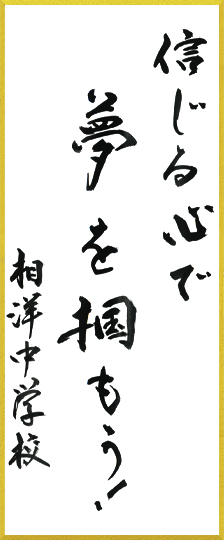 信じる心で
夢を掴もう!
相洋中学校